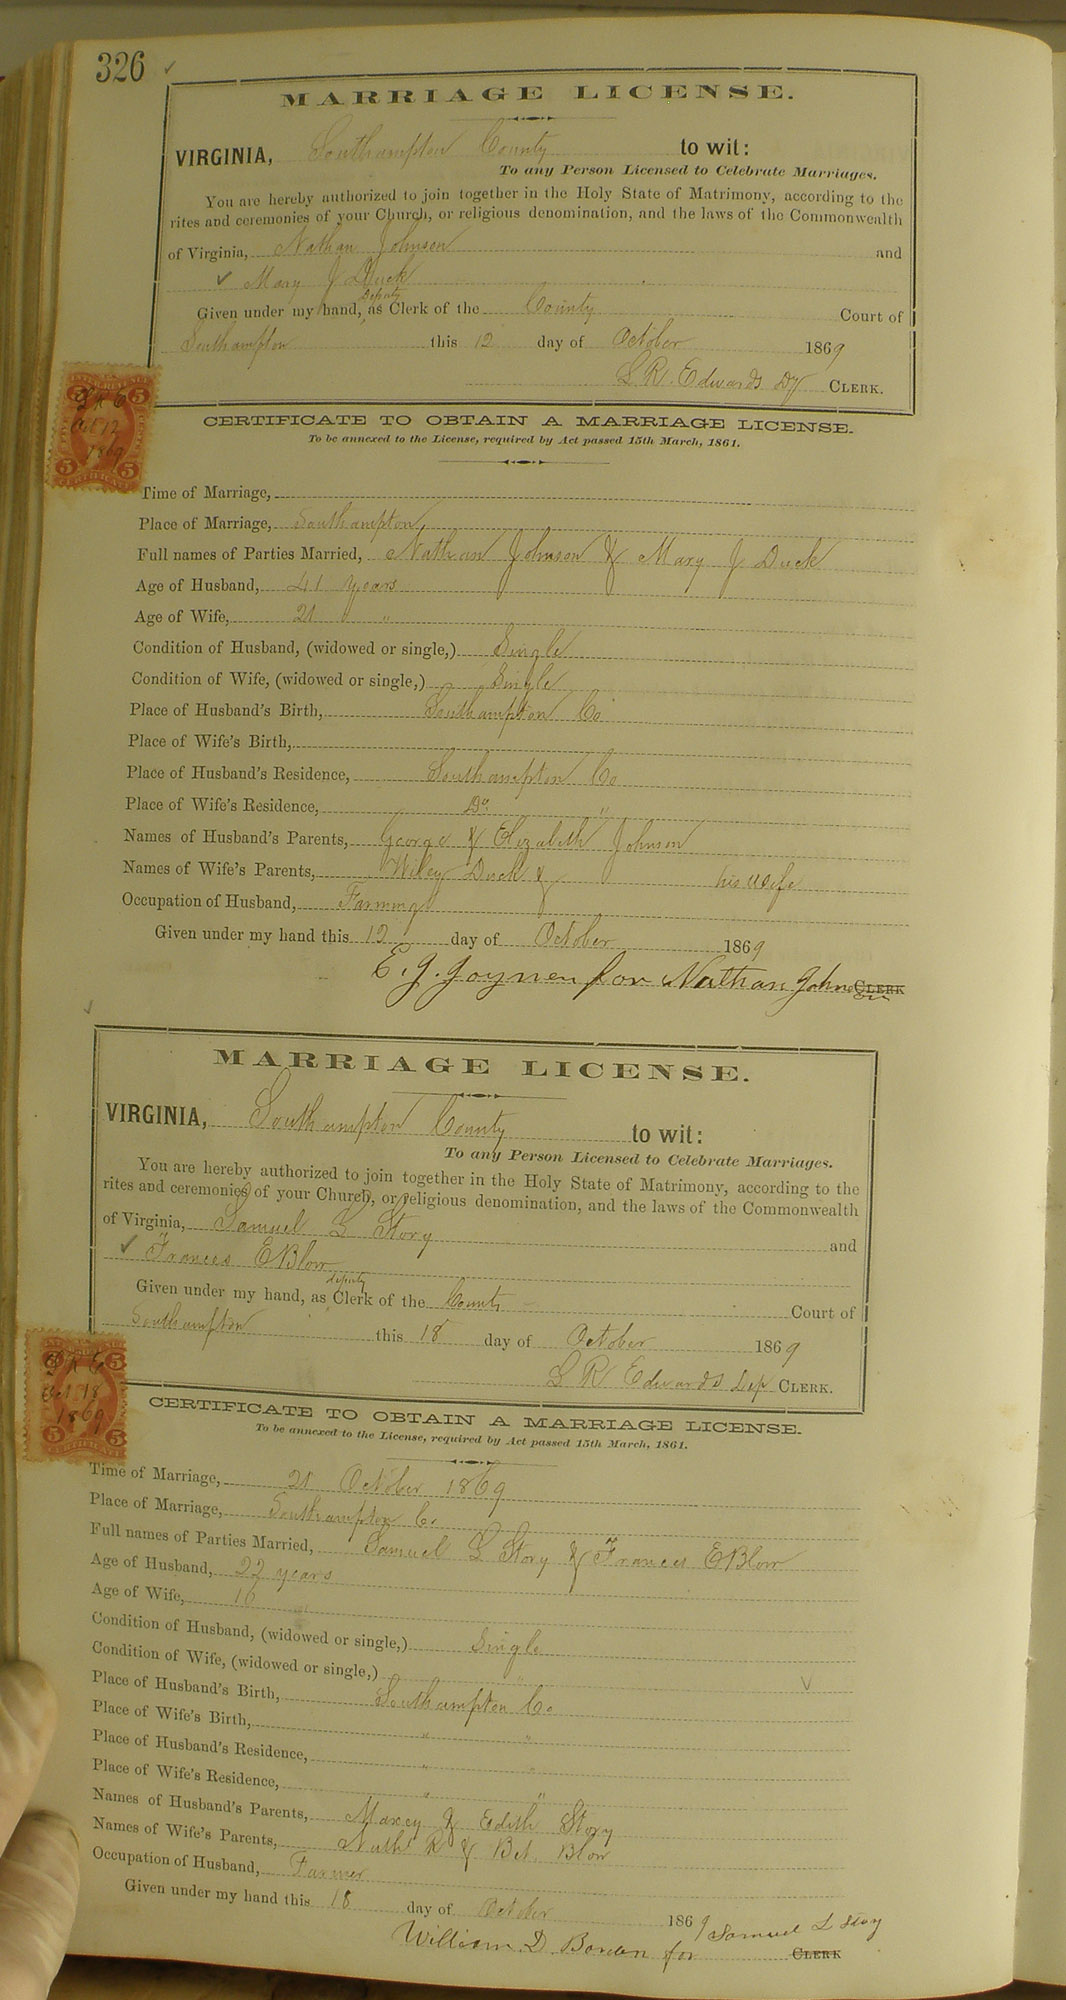 326
MARRIAGE LICENSE.
VIRGINIA, Southampton County to wit:
To any Person Licensed to Celebrate Marriages.
You are hereby authorized to join together in the Holy State of Matrimony, according to the
rites and ceremonies of your Church, or religious denomination, and the laws of the Commonwealth
of Virginia, Nathan Johnson and
✓ Mary J Duck
Deputy
Given under my hand, as Clerk of the County Court of
Southampton this 12 day of October 1869
L R. Edwards Dy CLERK.
5 5
L R E
Oct 12
1869
5 5
CERTIFICATE
CERTIFICATE TO OBTAIN A MARRIAGE LICENSE.
To be annexed to the License, required by Act passed 15th March, 1861.
Time of Marriage,
Place of Marriage, Southampton,
Full names of Parties Married, Nathan Johnson & Mary J Duck
Age of Husband, 41 years
Age of Wife, 21 "
Condition of Husband, (widowed or single,) Single
Condition of Wife, (widowed or single,) Single
Place of Husband's Birth, Southampton Co
Place of Wife's Birth,
Place of Husband's Residence, Southampton Co
Place of Wife's Residence, Do "
Names of Husband's Parents, George & Elizabeth Johnson
Names of Wife's Parents, Wiley Duck & his wife
Occupation of Husband, Farming
Given under my hand this 12 day of October 1869
E. J. Joyner for Nathan Johnson CLERK
MARRIAGE LICENSE.
VIRGINIA, Southampton County to wit:
To any Person Licensed to Celebrate Marriages.
You are hereby authorized to join together in the Holy State of Matrimony, according to the
rites and ceremonies of your Church, or religious denomination, and the laws of the Commonwealth
of Virginia, Samuel L Story and
✓ Frances E Blow
deputy
Given under my hand, as Clerk of the County Court of
Southampton this 18 day of October 1869
L R Edwards Dep CLERK.
5
L R E
Oct 18
1869
5 5
CERTIFICATE
CERTIFICATE TO OBTAIN A MARRIAGE LICENSE.
To be annexed to the License, required by Act passed 15th March, 1861.
Time of Marriage, 21 October 1869
Place of Marriage, Southampton Co.
Full names of Parties Married, Samuel L Story & Frances E Blow
Age of Husband, 22 years
Age of Wife, 16
Condition of Husband, (widowed or single,) Single
Condition of Wife, (widowed or single,) "
Place of Husband's Birth, Southampton Co
Place of Wife's Birth, " "
Place of Husband's Residence, " "
Place of Wife's Residence, " "
Names of Husband's Parents, Maxcy & Edith Story
Names of Wife's Parents, Nathl R & Bet. Blow
Occupation of Husband, Farmer
Given under my hand this 18 day of October 1869 Samuel L Story
William D for CLERK